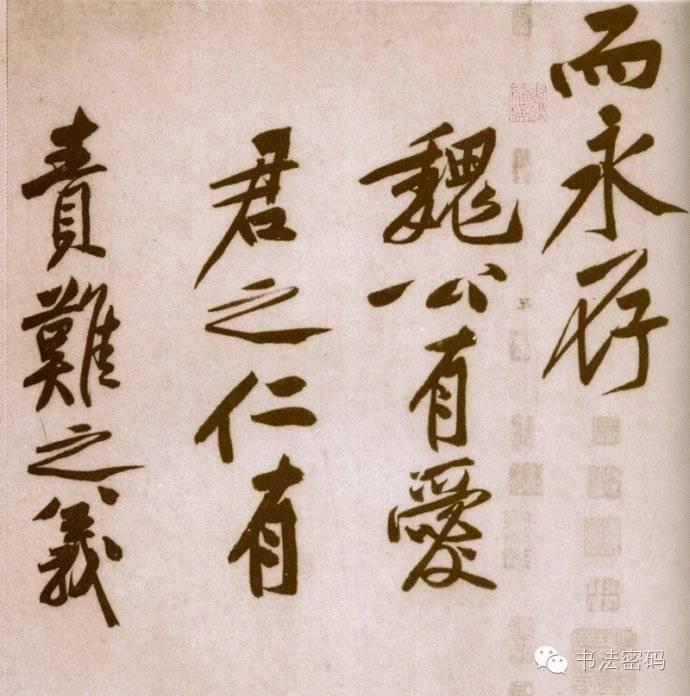 而永存
魏公有愛
君之仁有
責難之義
书法密码